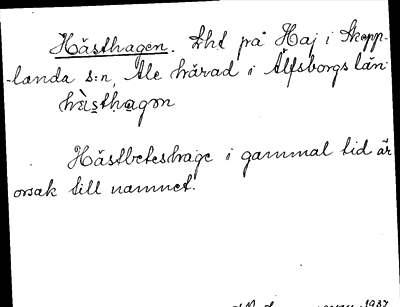 Hästhagen. Lht på Haj i Skepp-
-landa s:n, Ale härad i Älfsborgs län
hὰsthagon
Hästbeteshage i gammal tid är
orsak till namnet.
1937